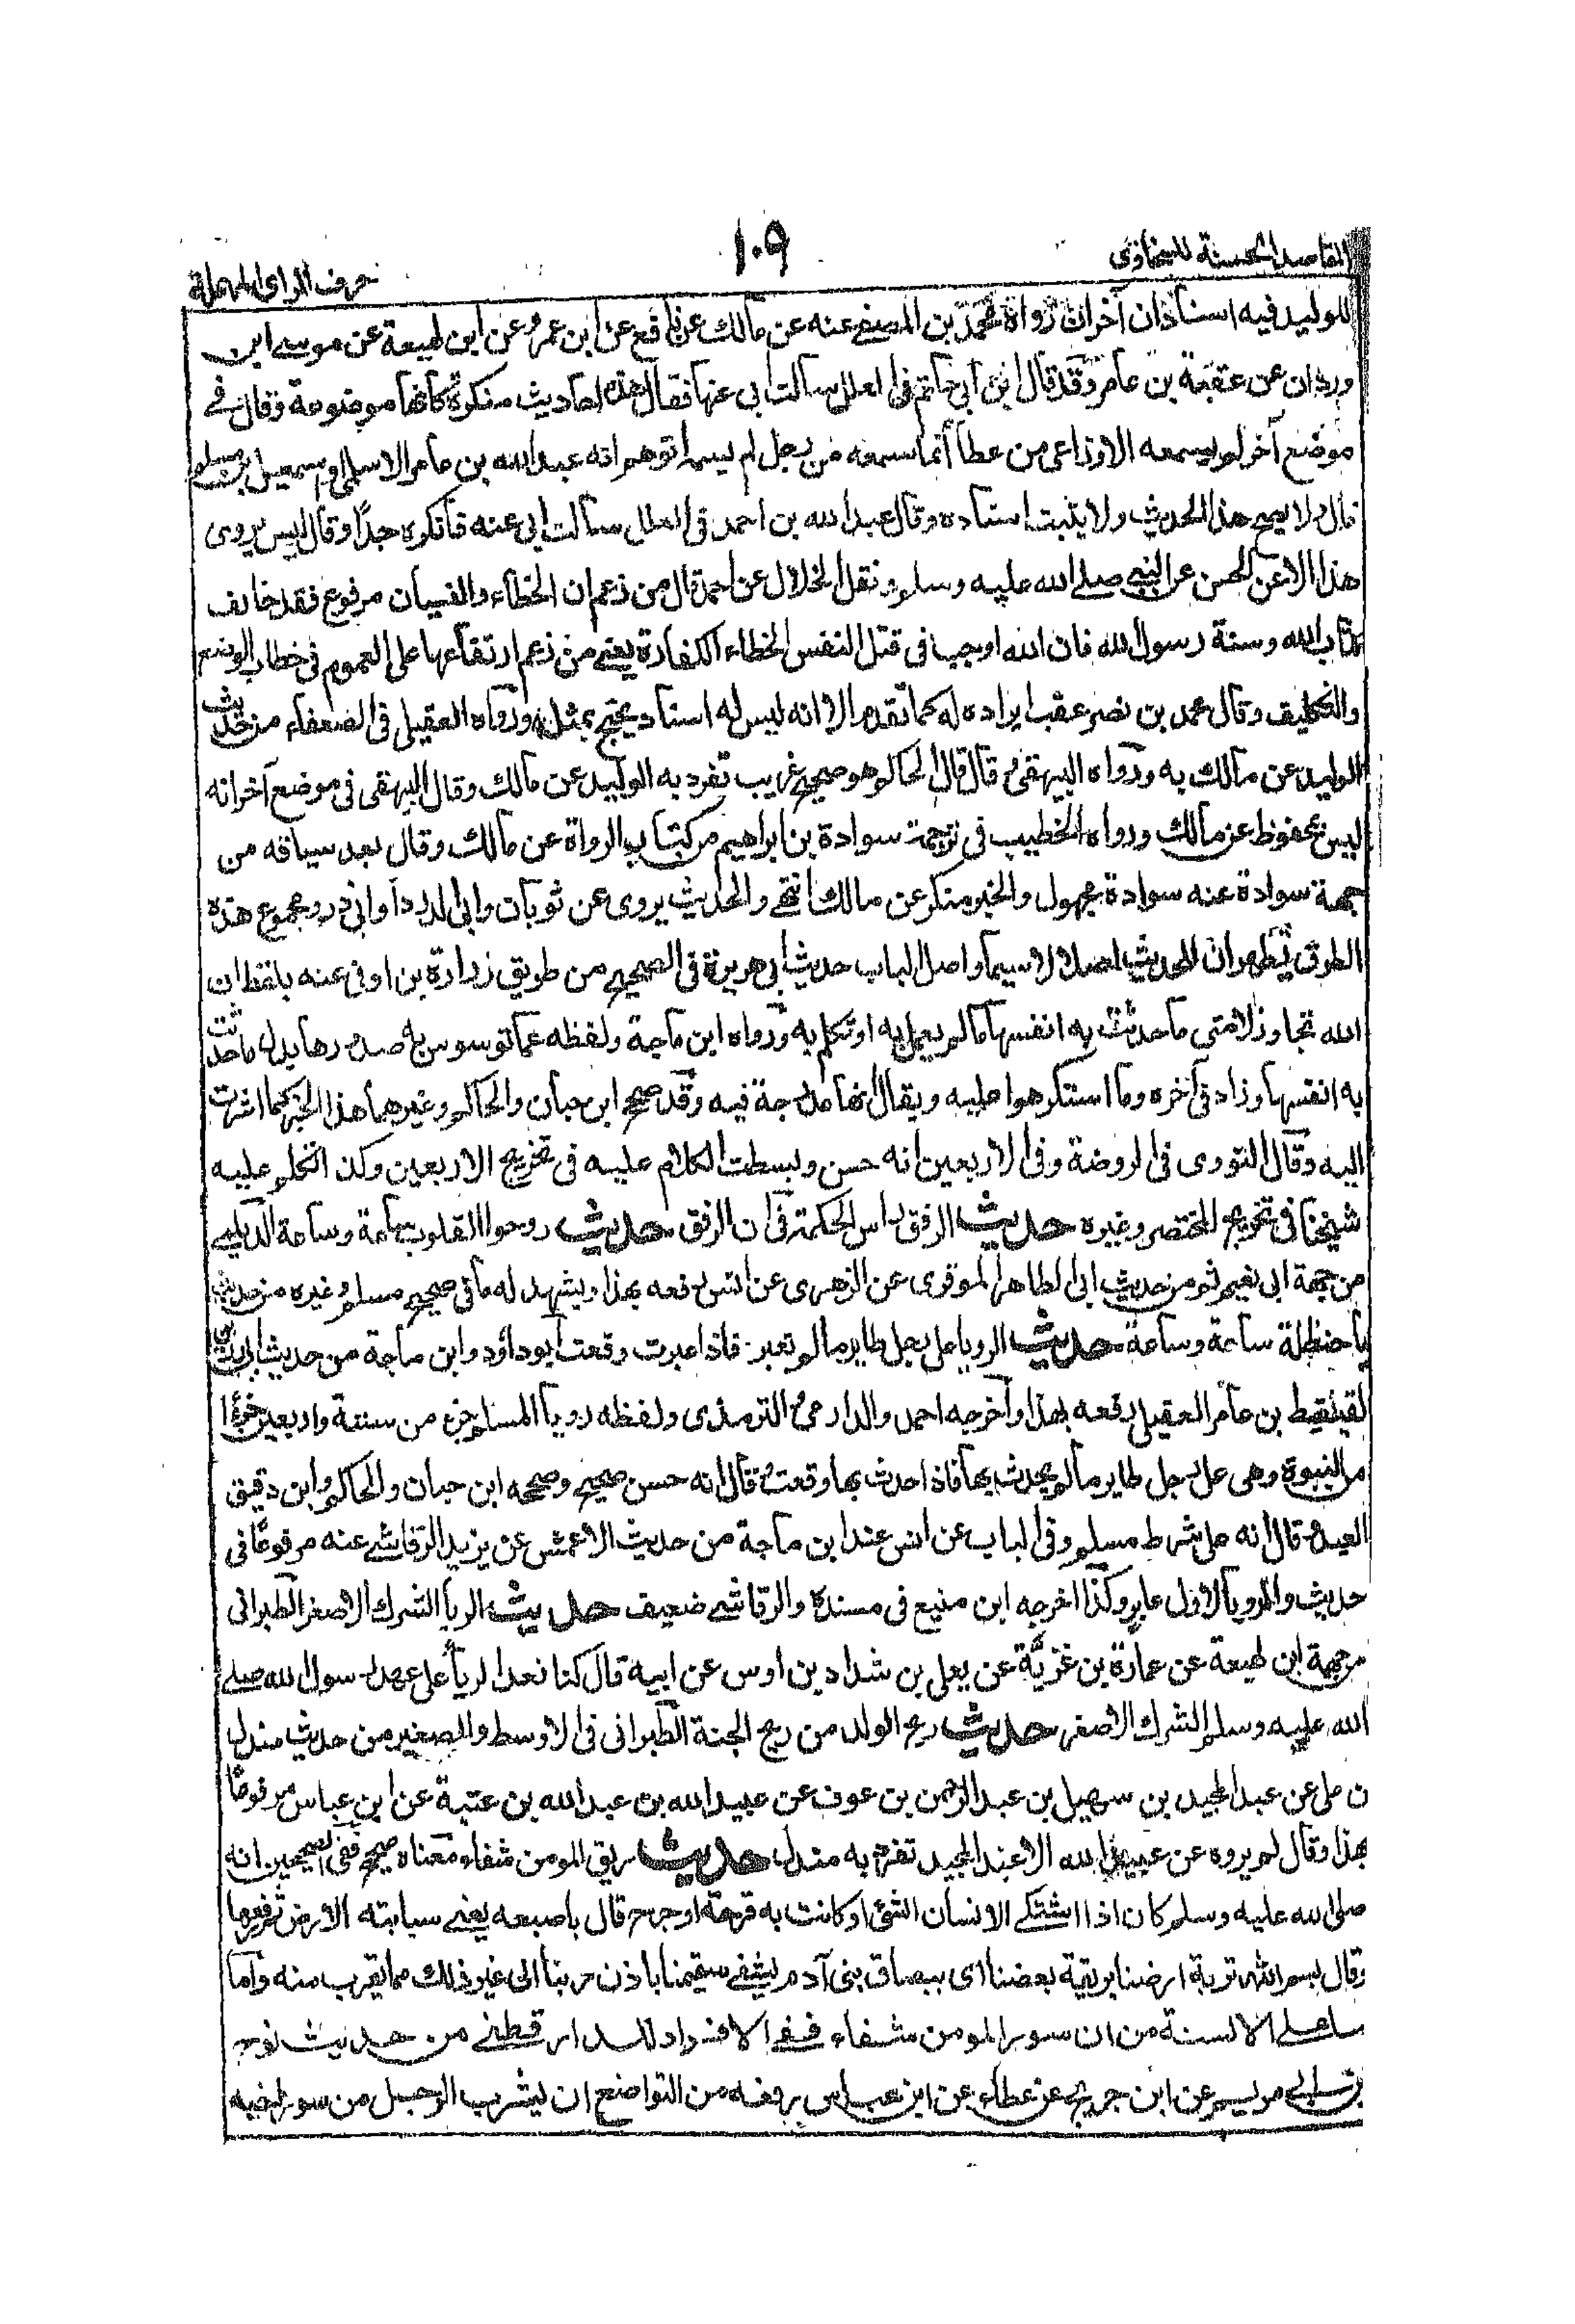 المقاصد الحسنة للسخاوى
١٠٩
حرف الراى المهملة
للوليد فيه اسنادان آخران رواه محمد بن المصفے عنه عن مالك عن نافع عن ابن عمر وعن ابن لهيعة عن موسے ابن
وردان عن عقبة بن عامر وقد قال ابن أبي حاتم فى العلل سالت ابى عنها فقال هذه احاديث منكرة كأنها موضوعة وقال فے
موضع آخر لم يسمعه الاوزاعى من عطا أنما سمعه من رجل لم يسمه اتوهم انه عبد الله بن عامر الاسلمى او اسمعيل بن مسلم
قال ولا يصح هذا الحديث ولا يثبت اسناده وقال عبد الله بن احمد فى العلل سالت ابى عنه فانكره جدًا وقال ليس يروى
هذا الا عن الحسن عن النبى صلے الله عليه وسلم ونقل الخلال عن احمد قال من زعم ان الخطاء والنسيان مرفوع فقد خالف
كتاب الله وسنة رسول الله فان الله اوجب فى قتل النفس الخطاء الكفارة يعنے من زعم ارتفاعها على العموم فى خطاب الوضع
والتكليف وقال محمد بن نصر عقب ايراده له كما تقدم الا انه ليس له اسناد يحتج بمثله ورواه العقيلى فى الضعفاء من حديث
الوليد عن مالك به ورواه البيهقى وقال قال الحاكم هو صحيح غريب تفرد به الوليد عن مالك وقال البيهقى فى موضع آخر انه
ليس بمحفوظ عن مالك ورواه الخطيب فى ترجمة سوادة بن ابراهيم من كتاب الرواة عن مالك وقال بعد سياقه من
جهة سوادة عنه سوادة مجهول والخبر منكر عن مالك انتهے والحديث يروى عن ثوبان وابى الدرداء وابى ذر ومجموع هذه
الطرق يظهر ان للحديث اصلا لا سيما واصل الباب حديث ابى هريرة فى الصحيح من طريق زرارة بن اوفى عنه بلفظ ان
الله تجاوز لامتى ما حدثت به انفسها ما لم يعمل به او تكلم به ورواه ابن ماجة ولفظه عما توسوس به صدورها بدل ما حدثت
به انفسها وزاد فى آخره وما استكرهوا عليه ويقال انها مدرجة فيه وقد صحح ابن حبان والحاكم وغيرهما هذا الخبر كما اشرت
اليه وقال النووى فى الروضة وفى الاربعين انه حسن وبسطت الكلام عليه فى تخريج الاربعين وكذا تكلم عليه
شيخنا فى تخريج المختصر وغيره حديث الرفق راس الحكمة فى ان الرفق حديث روحوا القلوب ساعة وساعة الديلمے
من جهة ابى نعيم ثم من حديث ابى الطاهر الموقرى عن الزهرى عن انس رفعه بهذا ويشهد له ما فى صحيح مسلم وغيره من حديث
يا حنظلة ساعة وساعة حديث الرويا على رجل طاير ما لم تعبر فاذا عبرت وقعت أبو داؤد وابن ماجة من حديث ابى رزين
لقيط بن عامر العقيلى رفعه بهذا وأخرجه احمد والدارمى والترمذى ولفظه رويا المسلم جزء من ستة واربعين جزءا
من النبوة وهى على رجل طاير ما لم يحدث بها فاذا حدث بها وقعت وقال انه حسن صحيح وصححه ابن حبان والحاكم وابن دقيق
العيد وقال انه على شرط مسلم وفى الباب عن انس عند ابن ماجة من حديث الاعمش عن يزيد الرقاشے عنه مرفوعًا فى
حديث والرويا لاول عابر وكذا اخرجه ابن منيع فى مسنده والرقاشے ضعيف حديث الريا الشرك الاصغر الطبرانى
من جهة ابن لهيعة عن عمارة بن غزيّة عن يعلى بن شداد بن اوس عن ابيه قال كنا نعد الريا على عهد رسول الله صلے
الله عليه وسلم الشرك الاصغر حديث ريح الولد من ريح الجنة الطبرانى فى الاوسط والصغير من حديث مندل
ن على عن عبد المجيد بن سهيل بن عبد الرحمن بن عوف عن عبيد الله بن عبد الله بن عتبة عن ابن عباس مرفوعًا
بهذا وقال لم يروه عن عبيد الله الا عبد المجيد تفرد به مندل حديث ريق المومن شفاء معناه صحيح ففى الصحيحين انه
صلى الله عليه وسلم كان اذا اشتكے الانسان الشئ او كانت به قرحة او جرح قال باصبعه يعنے سبابته الارض ثم رفعها
وقال بسم الله تربة ارضنا بريقة بعضنا اى ببصاق بنى آدم يشفے سقيمنا باذن ربنا الى غير ذلك مما يقرب منه واما
ما على الالسنة من ان سور المومن شفاء ففے الافراد للدارقطنے من حديث نوح
بن ابى مريم عن ابن جريج عن عطاء عن ابن عباس رفعه من التواضع ان يشرب الرجل من سور اخيه